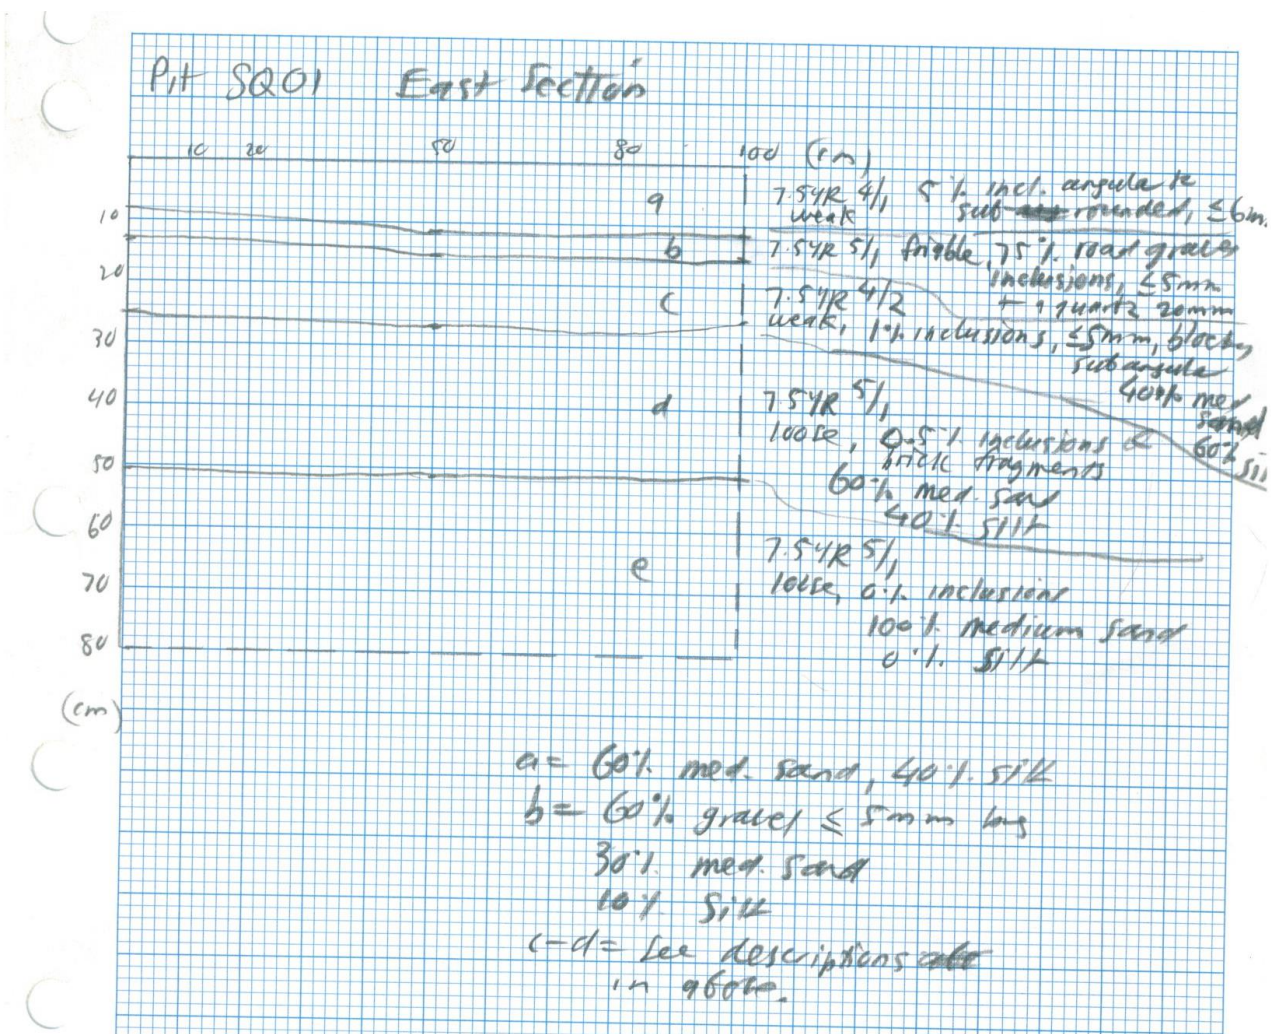 Pit SQ01 East Section
10 20 50 80 100 (cm)
a
7.5YR 4/1 5% incl. angula to
weak sub rounded, ≤6m
10
b
7.5YR 5/1 friable, 75% road gravel
inclusions, ≤5mm
+ 1 quartz 20mm
20
c
7.5YR 4/2
weak, 1% inclusions, ≤5mm, blocky
subangula
40% med
sand
60% sil
30
40
d
7.5YR 5/1
loose, 0.5% inclusions &
brick fragments
60% med. sand
40% silt
50
60
e
7.5YR 5/1
loose, 0% inclusions
100% medium sand
0% silt
70
80
(cm)
a= 60% med. sand, 40% silt
b= 60% gravel ≤ 5mm long
30% med. sand
10% Silt
c-d= see descriptions
in above.